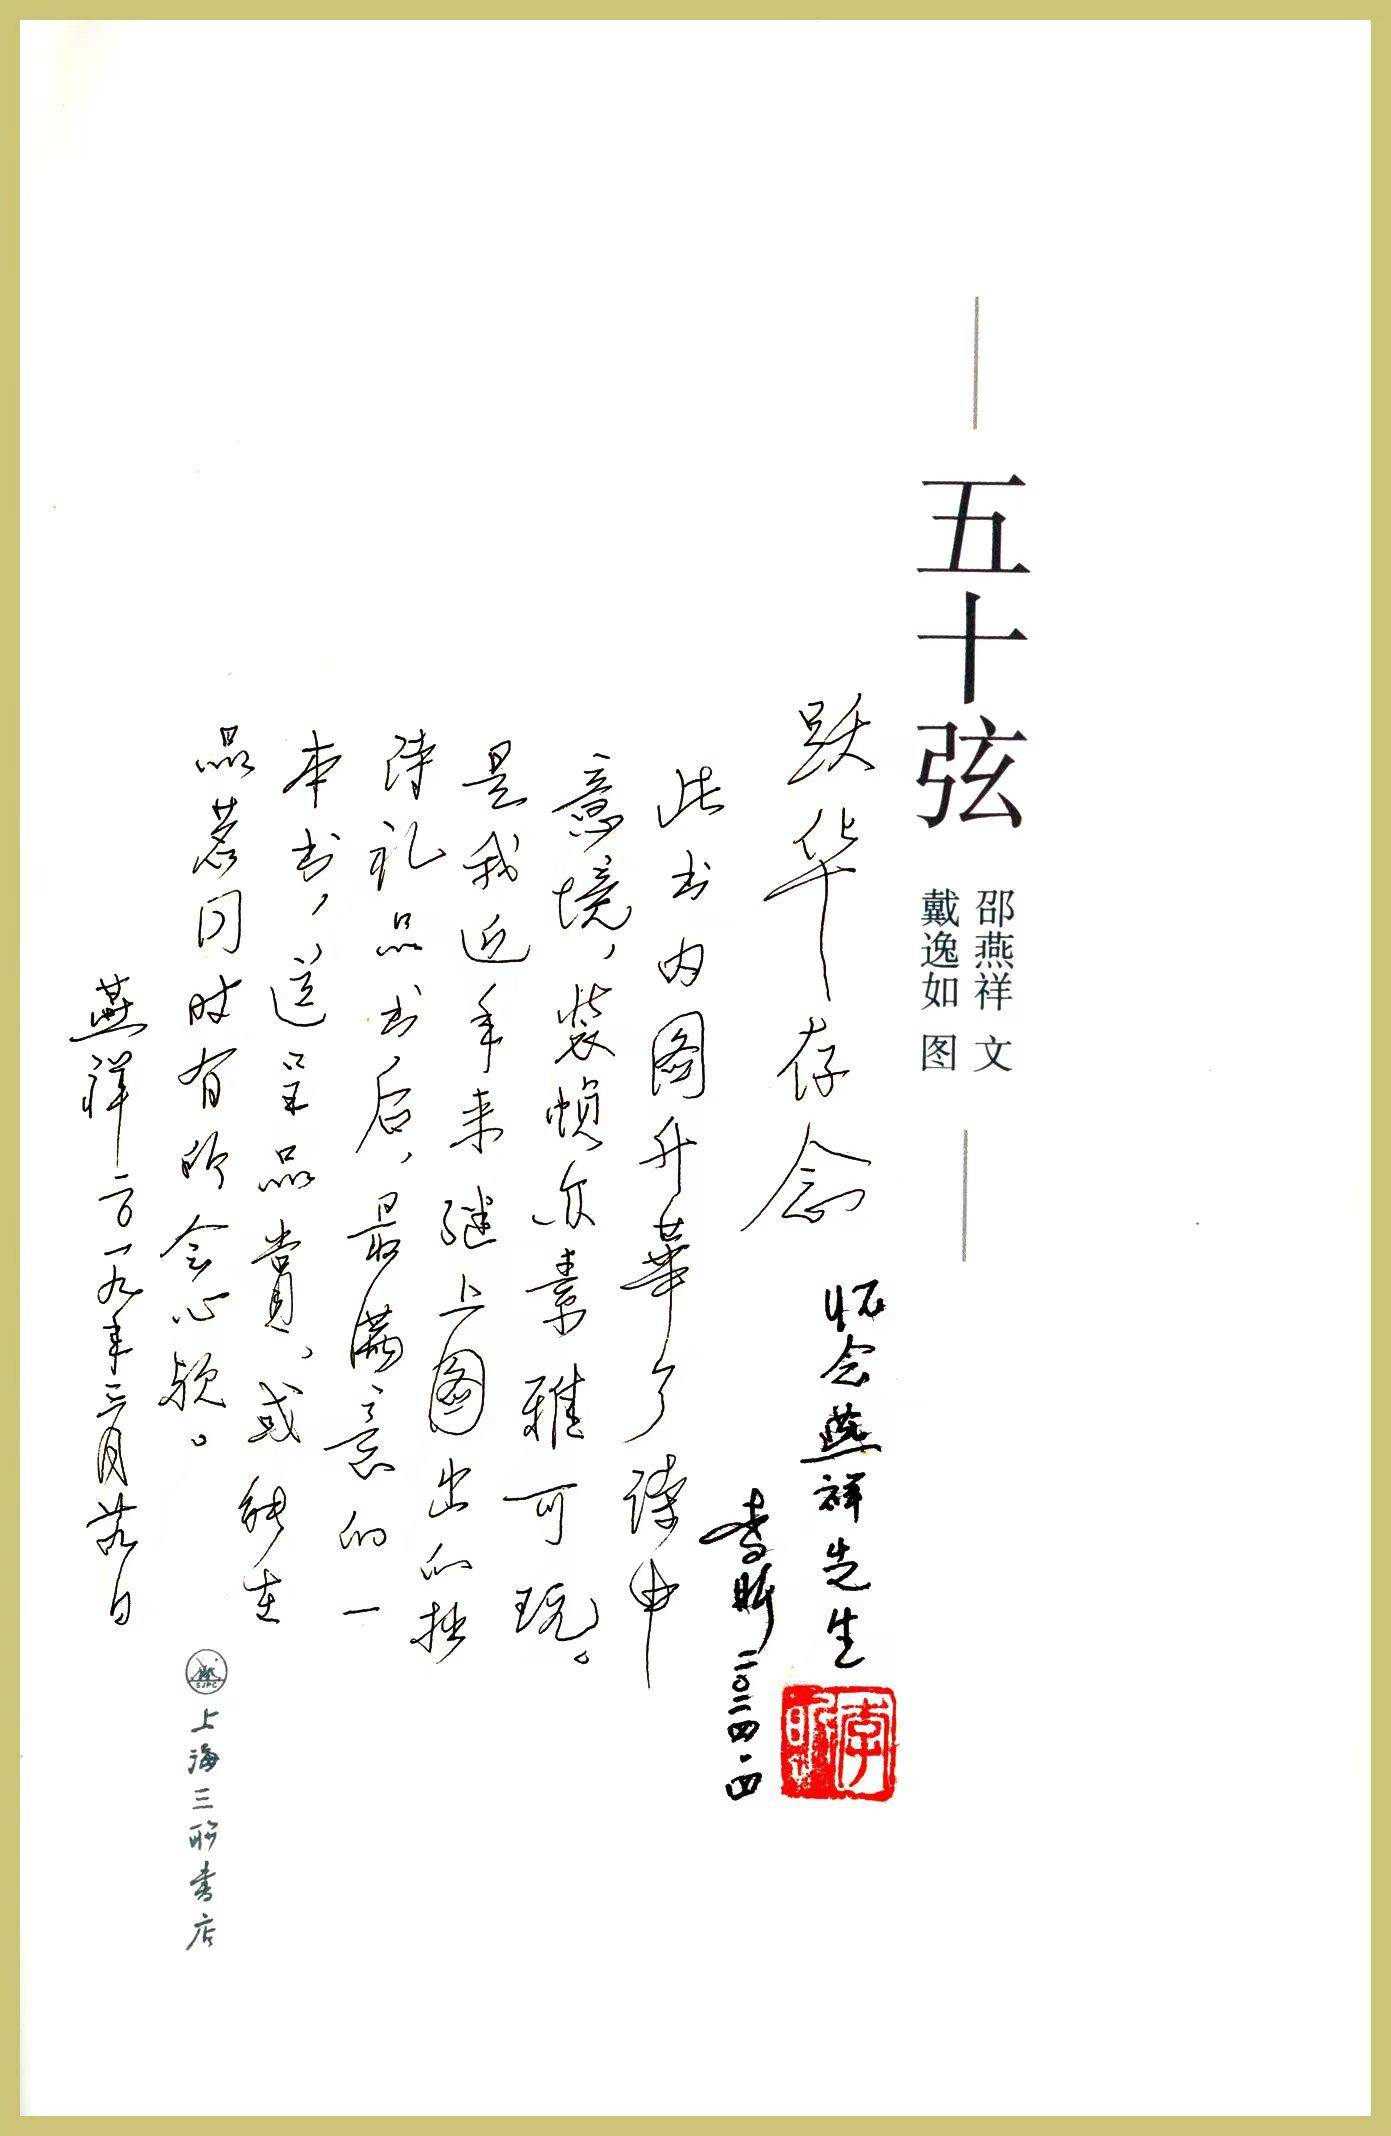 五十弦
邵燕祥 文
戴逸如 图
跃华存念
此书内图升华了诗中
意境，装帧亦素雅可玩。
是我近年来继上图出的拙
诗礼品书后，最满意的一
本书，送呈品赏，或能在
品茗同时有所会心欤。
燕祥 二〇一九年三月 日
怀念燕祥先生
李昕 二〇二四·四
李昕
SJPC
上海三联书店